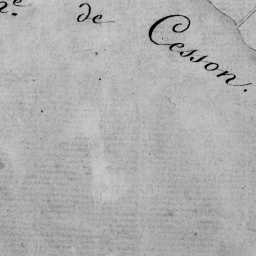 de Cesson.